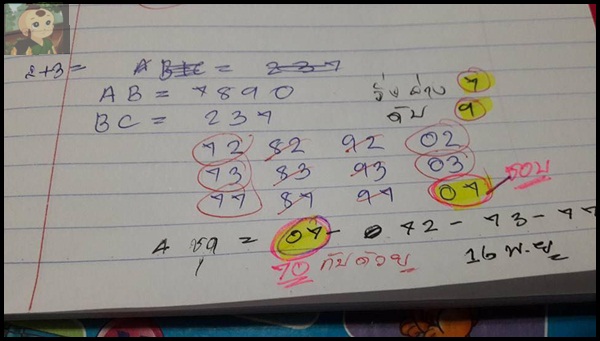 2+3=
AB = 7890
BC = 237
วิ่งล่าง 7
ดับ 9
72 82 92 02
73 83 93 03
77 87 97 07
ชอบ
A ชุด = 07 - 72 - 73 - 77
70 กับด้วย
16 พ.ย